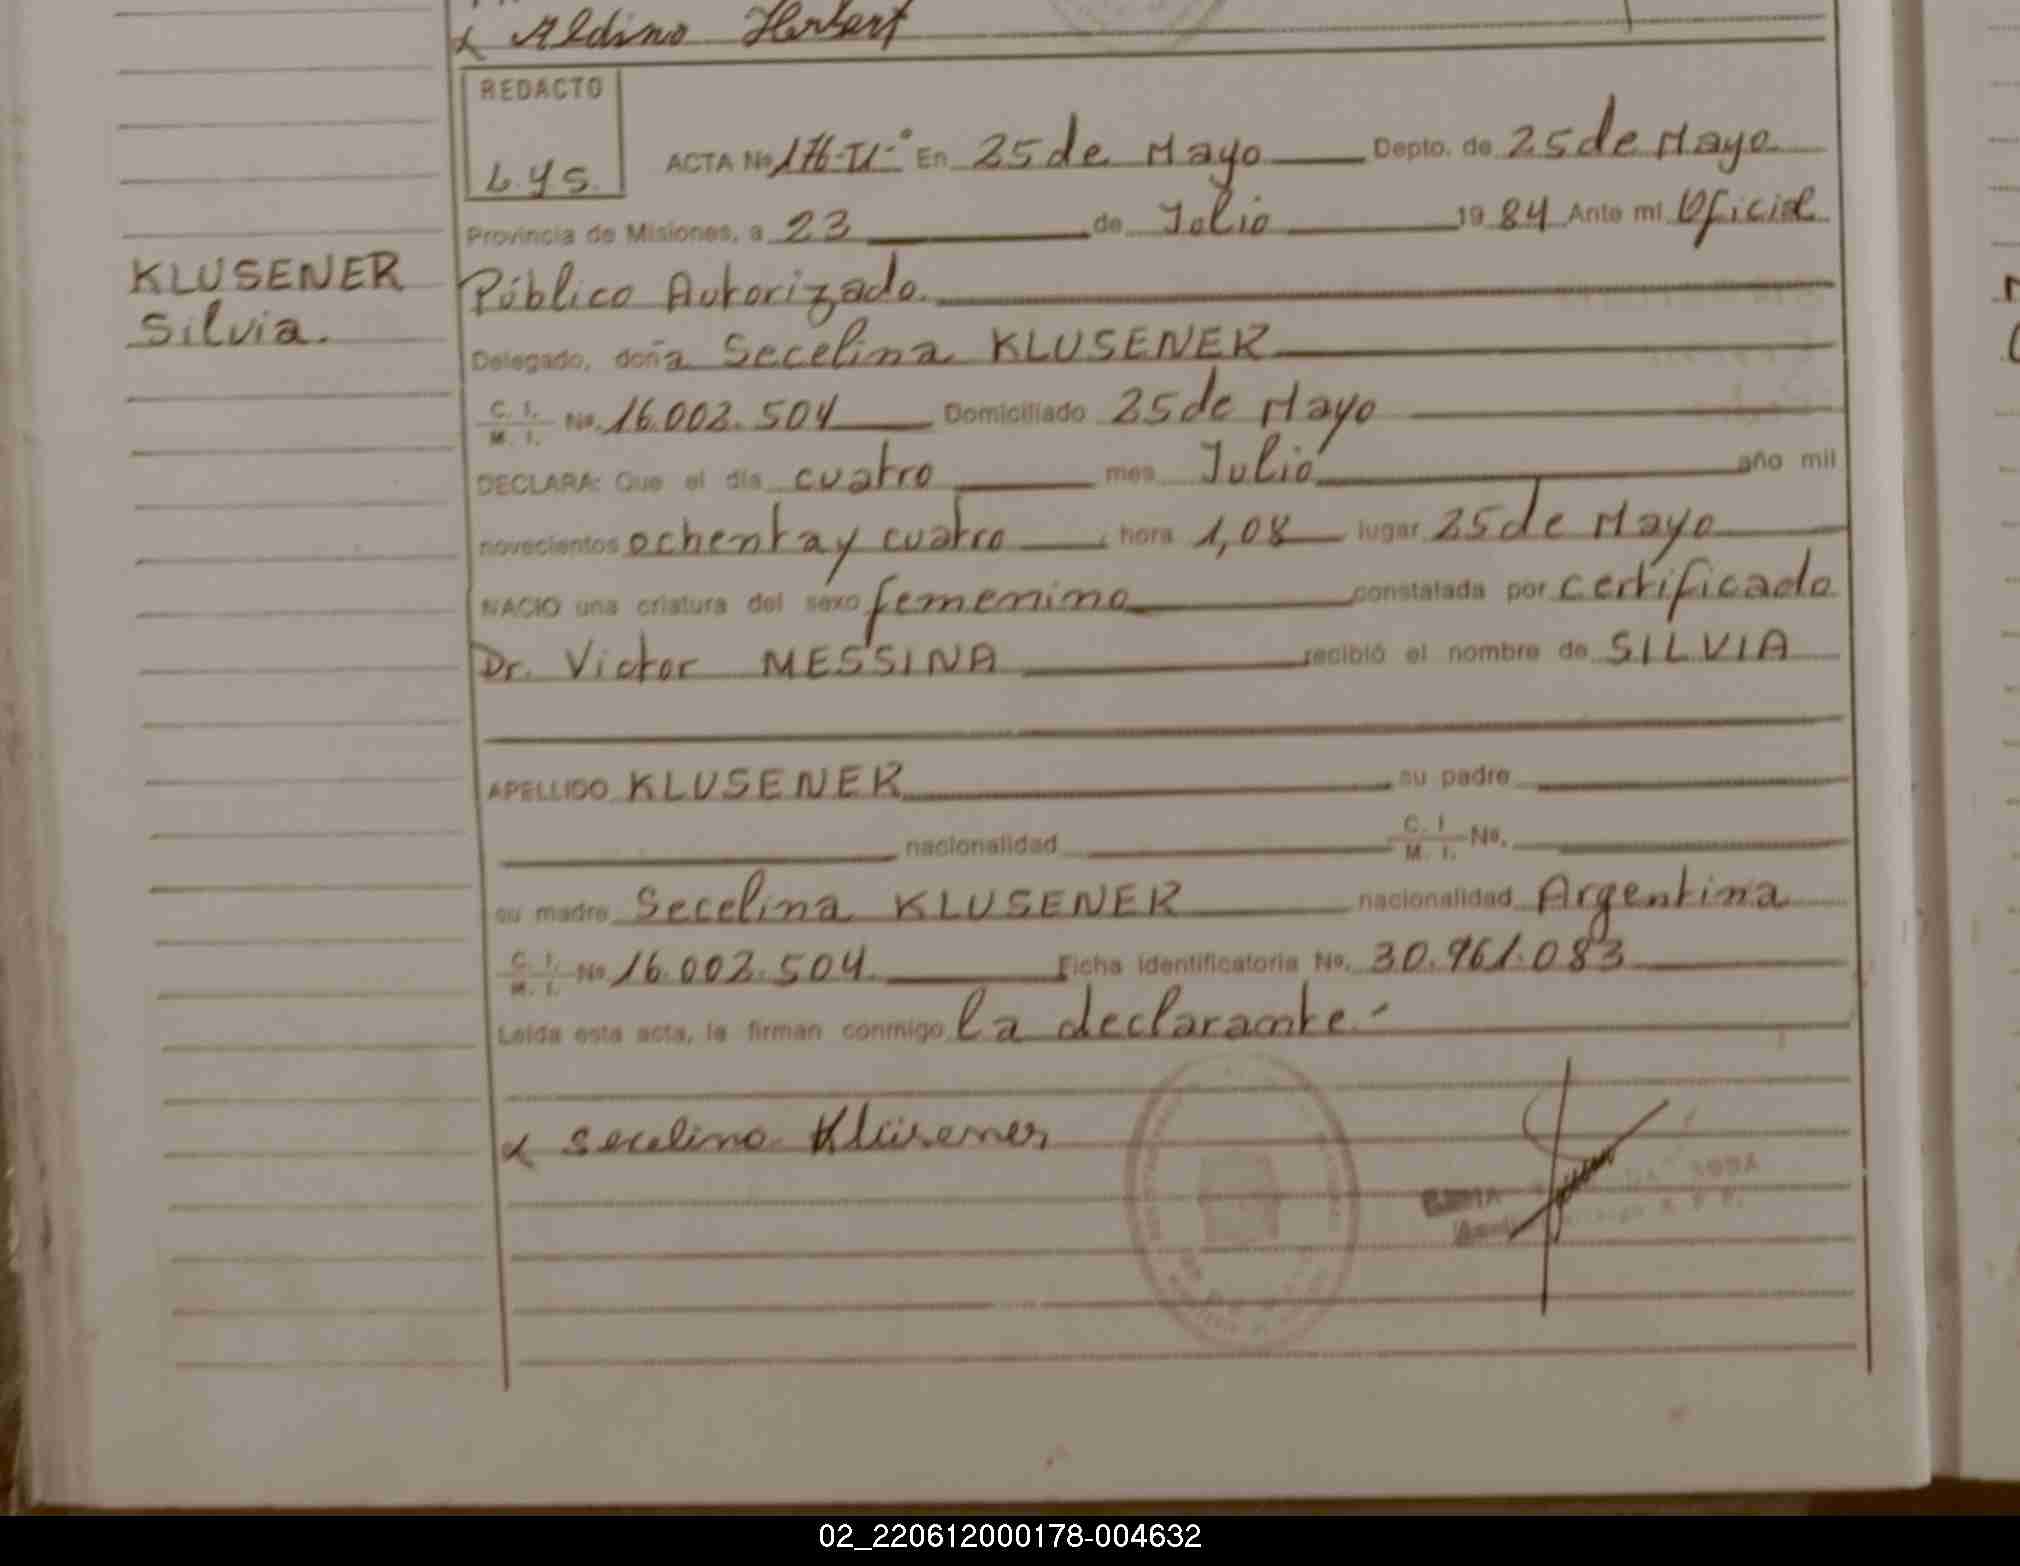 x Aldino Herbert
REDACTO
L.y S.
ACTA Nº 176-TI-º En 25 de Mayo Depto. de 25 de Mayo
Provincia de Misiones, a 23 de Julio 1984 Ante mi Oficial
KLUSENER
Silvia.
Público Autorizado.
Delegado, doña Secelina KLUSENER
C. I.
M. I. Nº. 16.002.504 Domiciliado 25 de Mayo
DECLARA: Que el día cuatro mes Julio año mil
novecientos ochenta y cuatro, hora 1,08 lugar 25 de Mayo
NACIO una criatura del sexo femenino constatada por certificado
Dr. Victor MESSINA recibió el nombre de SILVIA
APELLIDO KLUSENER su padre
nacionalidad C. I.
M. I. Nº.
su madre Secelina KLUSENER nacionalidad Argentina
C. I.
M. I. Nº 16.002.504 Ficha Identificatoria Nº. 30.961.083
Leída esta acta, la firman conmigo la declarante.-
x Secelina Klüsener
02_220612000178-004632